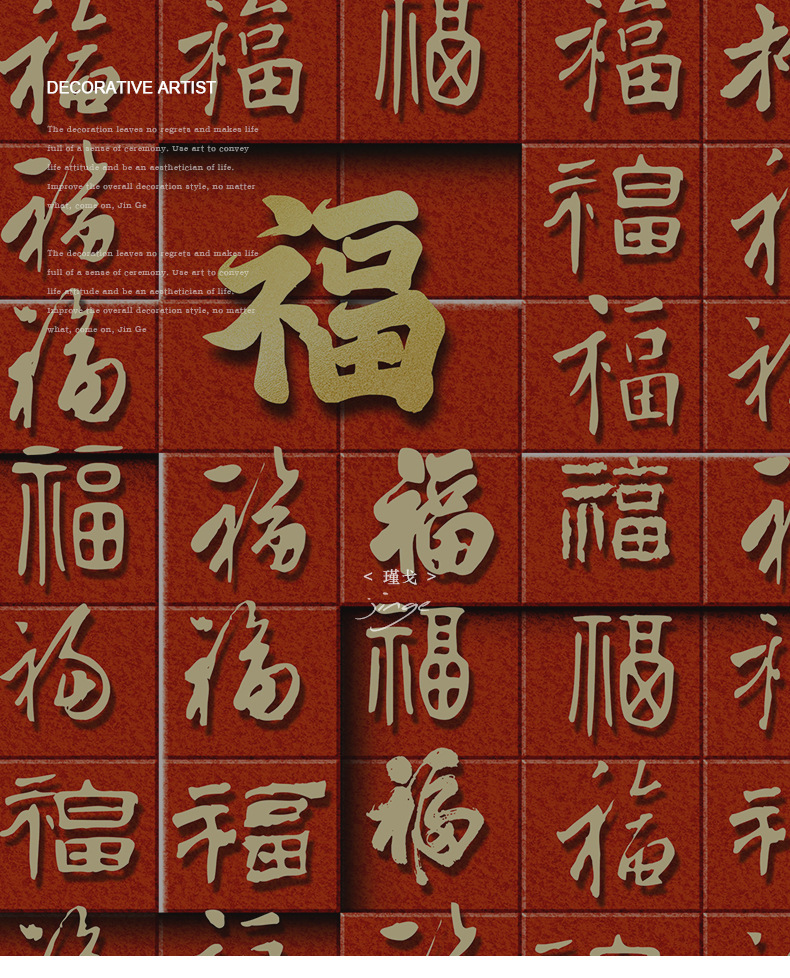 福 福 福 福 福
DECORATIVE ARTIST
The decoration leaves no regrets and makes life
full of a sense of ceremony. Use art to convey
life attitude and be an aesthetician of life.
Improve the overall decoration style, no matter
what, come on, Jin Ge
福 福 福 福
The decoration leaves no regrets and makes life
full of a sense of ceremony. Use art to convey
life attitude and be an aesthetician of life.
Improve the overall decoration style, no matter
what, come on, Jin Ge
福 福 福
福 福 福 福 福
< 瑾戈 >
jinge
福 福 福 福 福
福 福 福 福 福
福 福 福 福